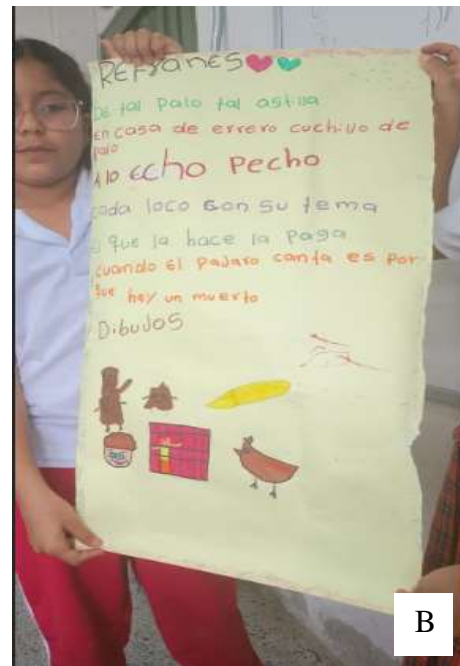 REFraNES
De tal palo tal astilla
EN casa de errero cuchillo de
palo
A lo Echo Pecho
cada loco con su tema
El que la hace la paga
cuando El pajaro canta es por
que hay un muerto
Dibujos
B